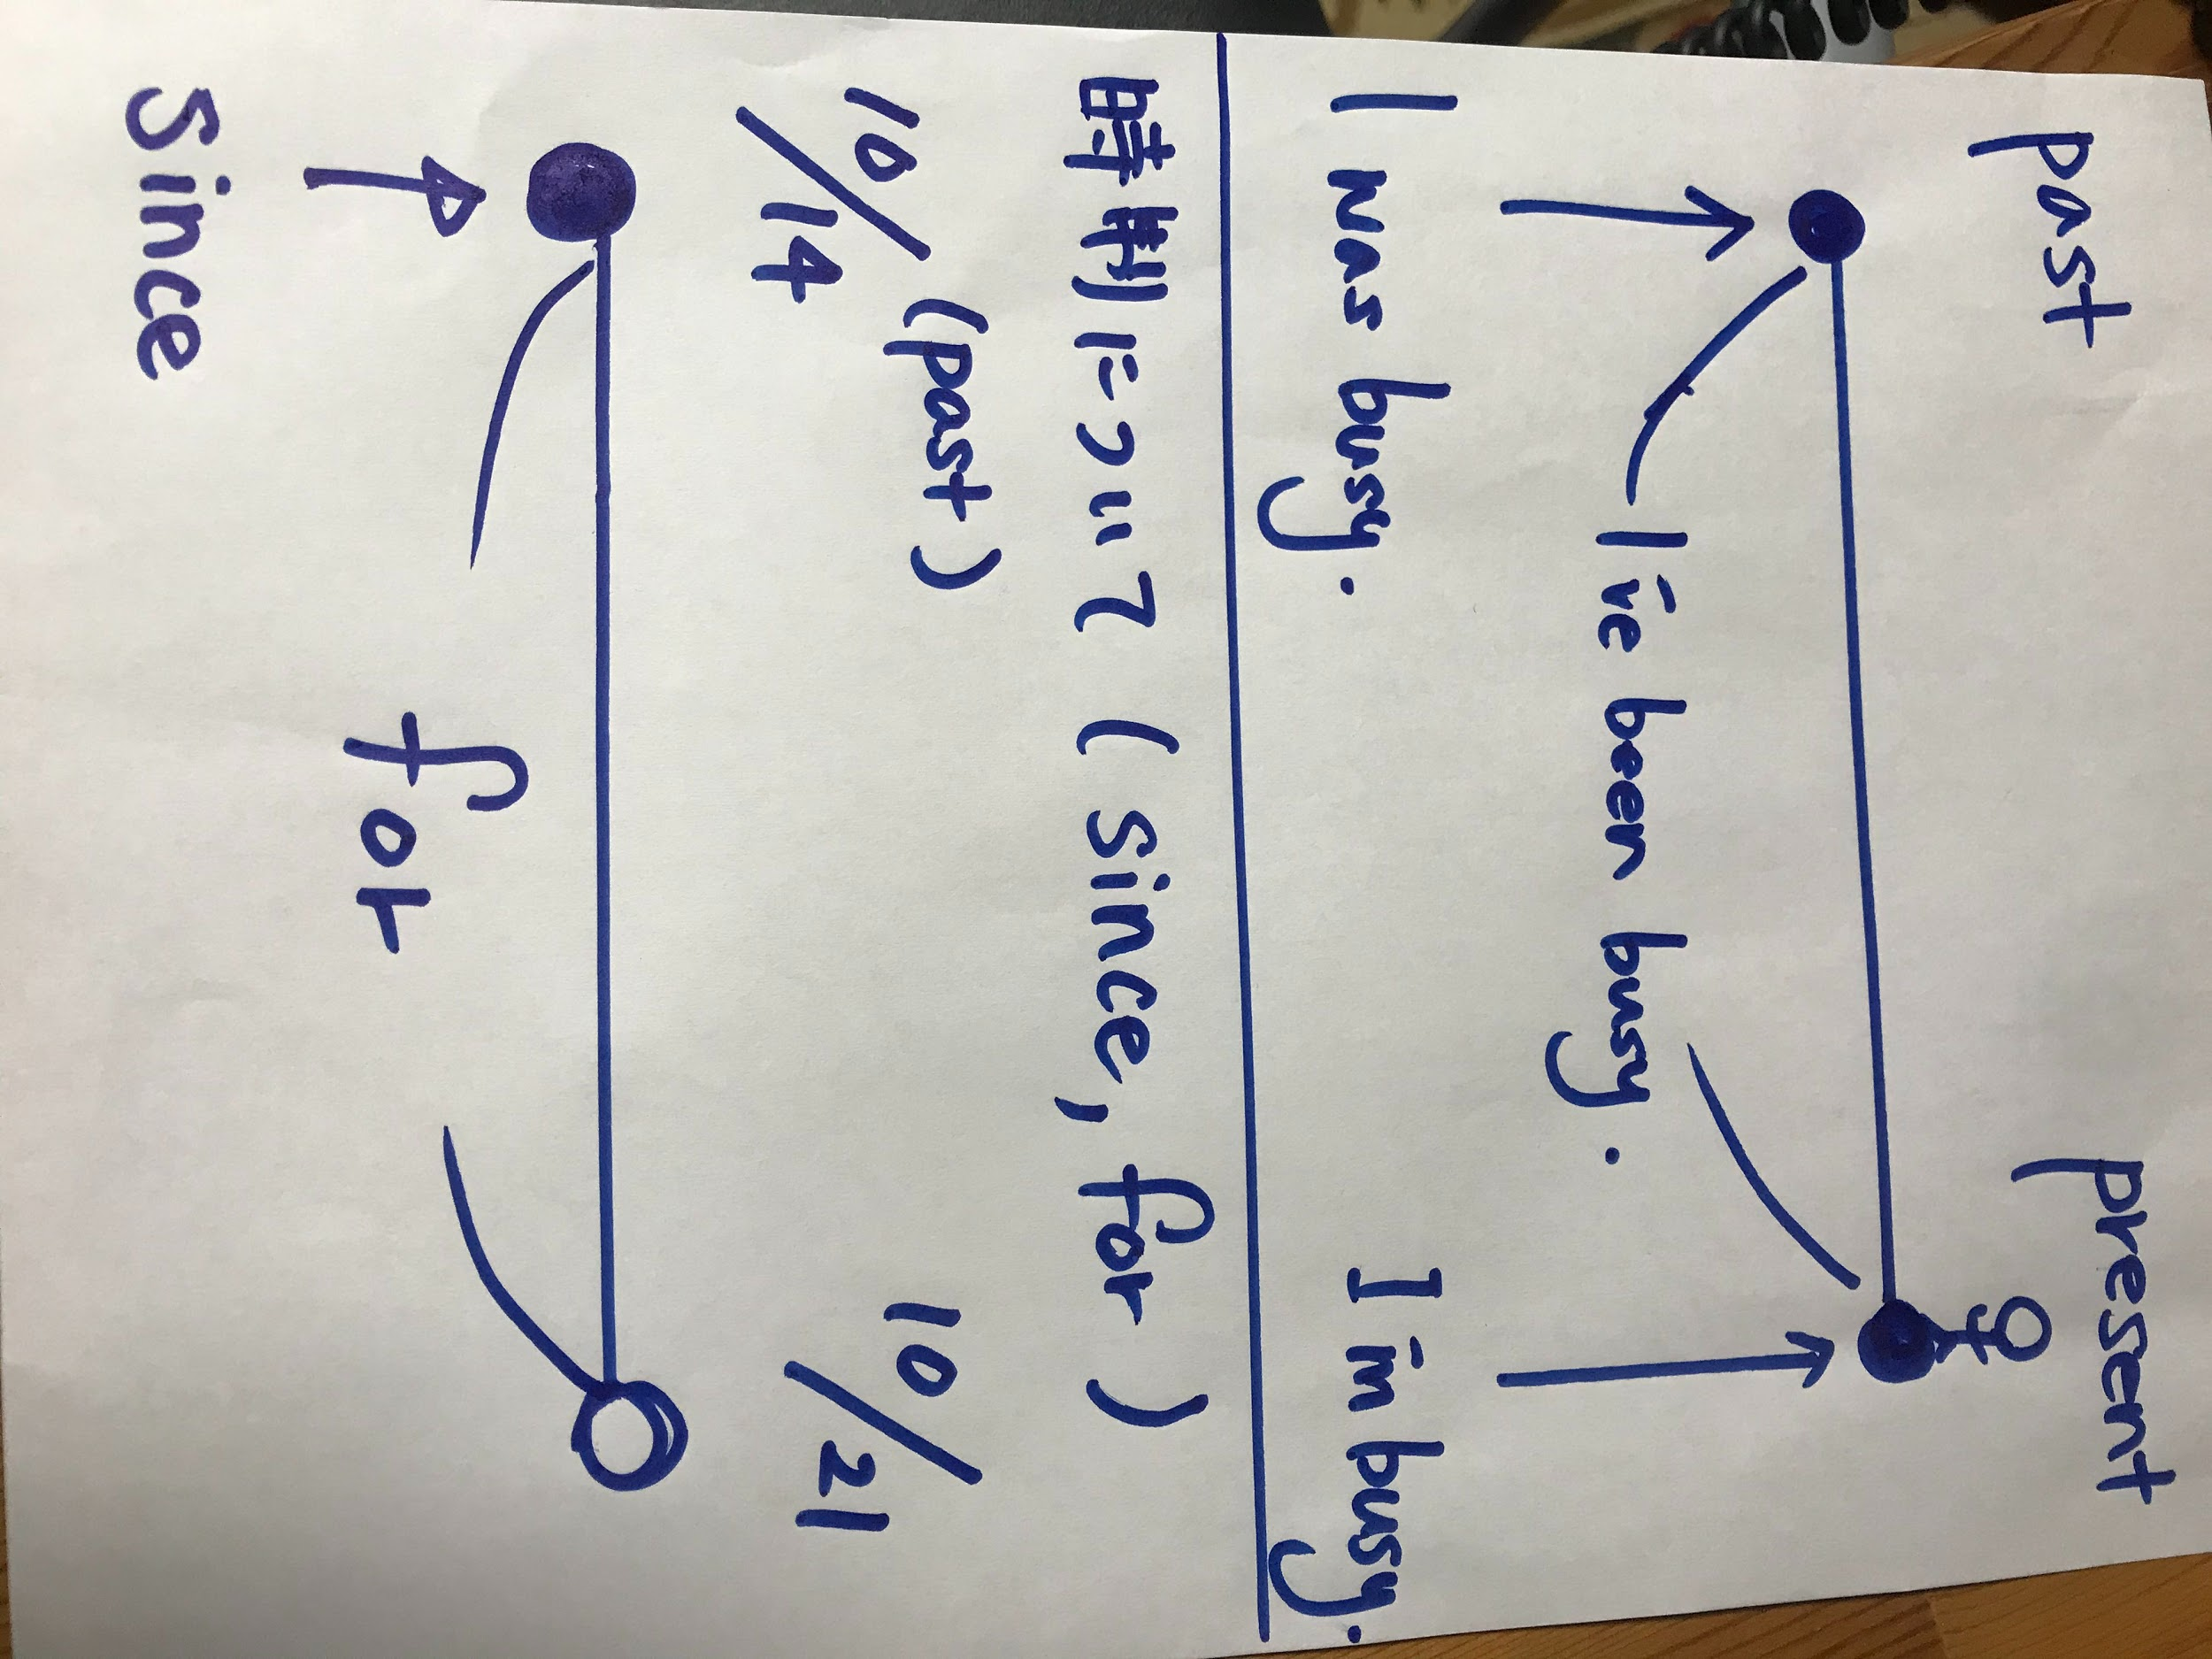 past present
I've been busy.
I was busy. I'm busy.
時制について (Since, for)
(past)
10/14 10/21
for
Since